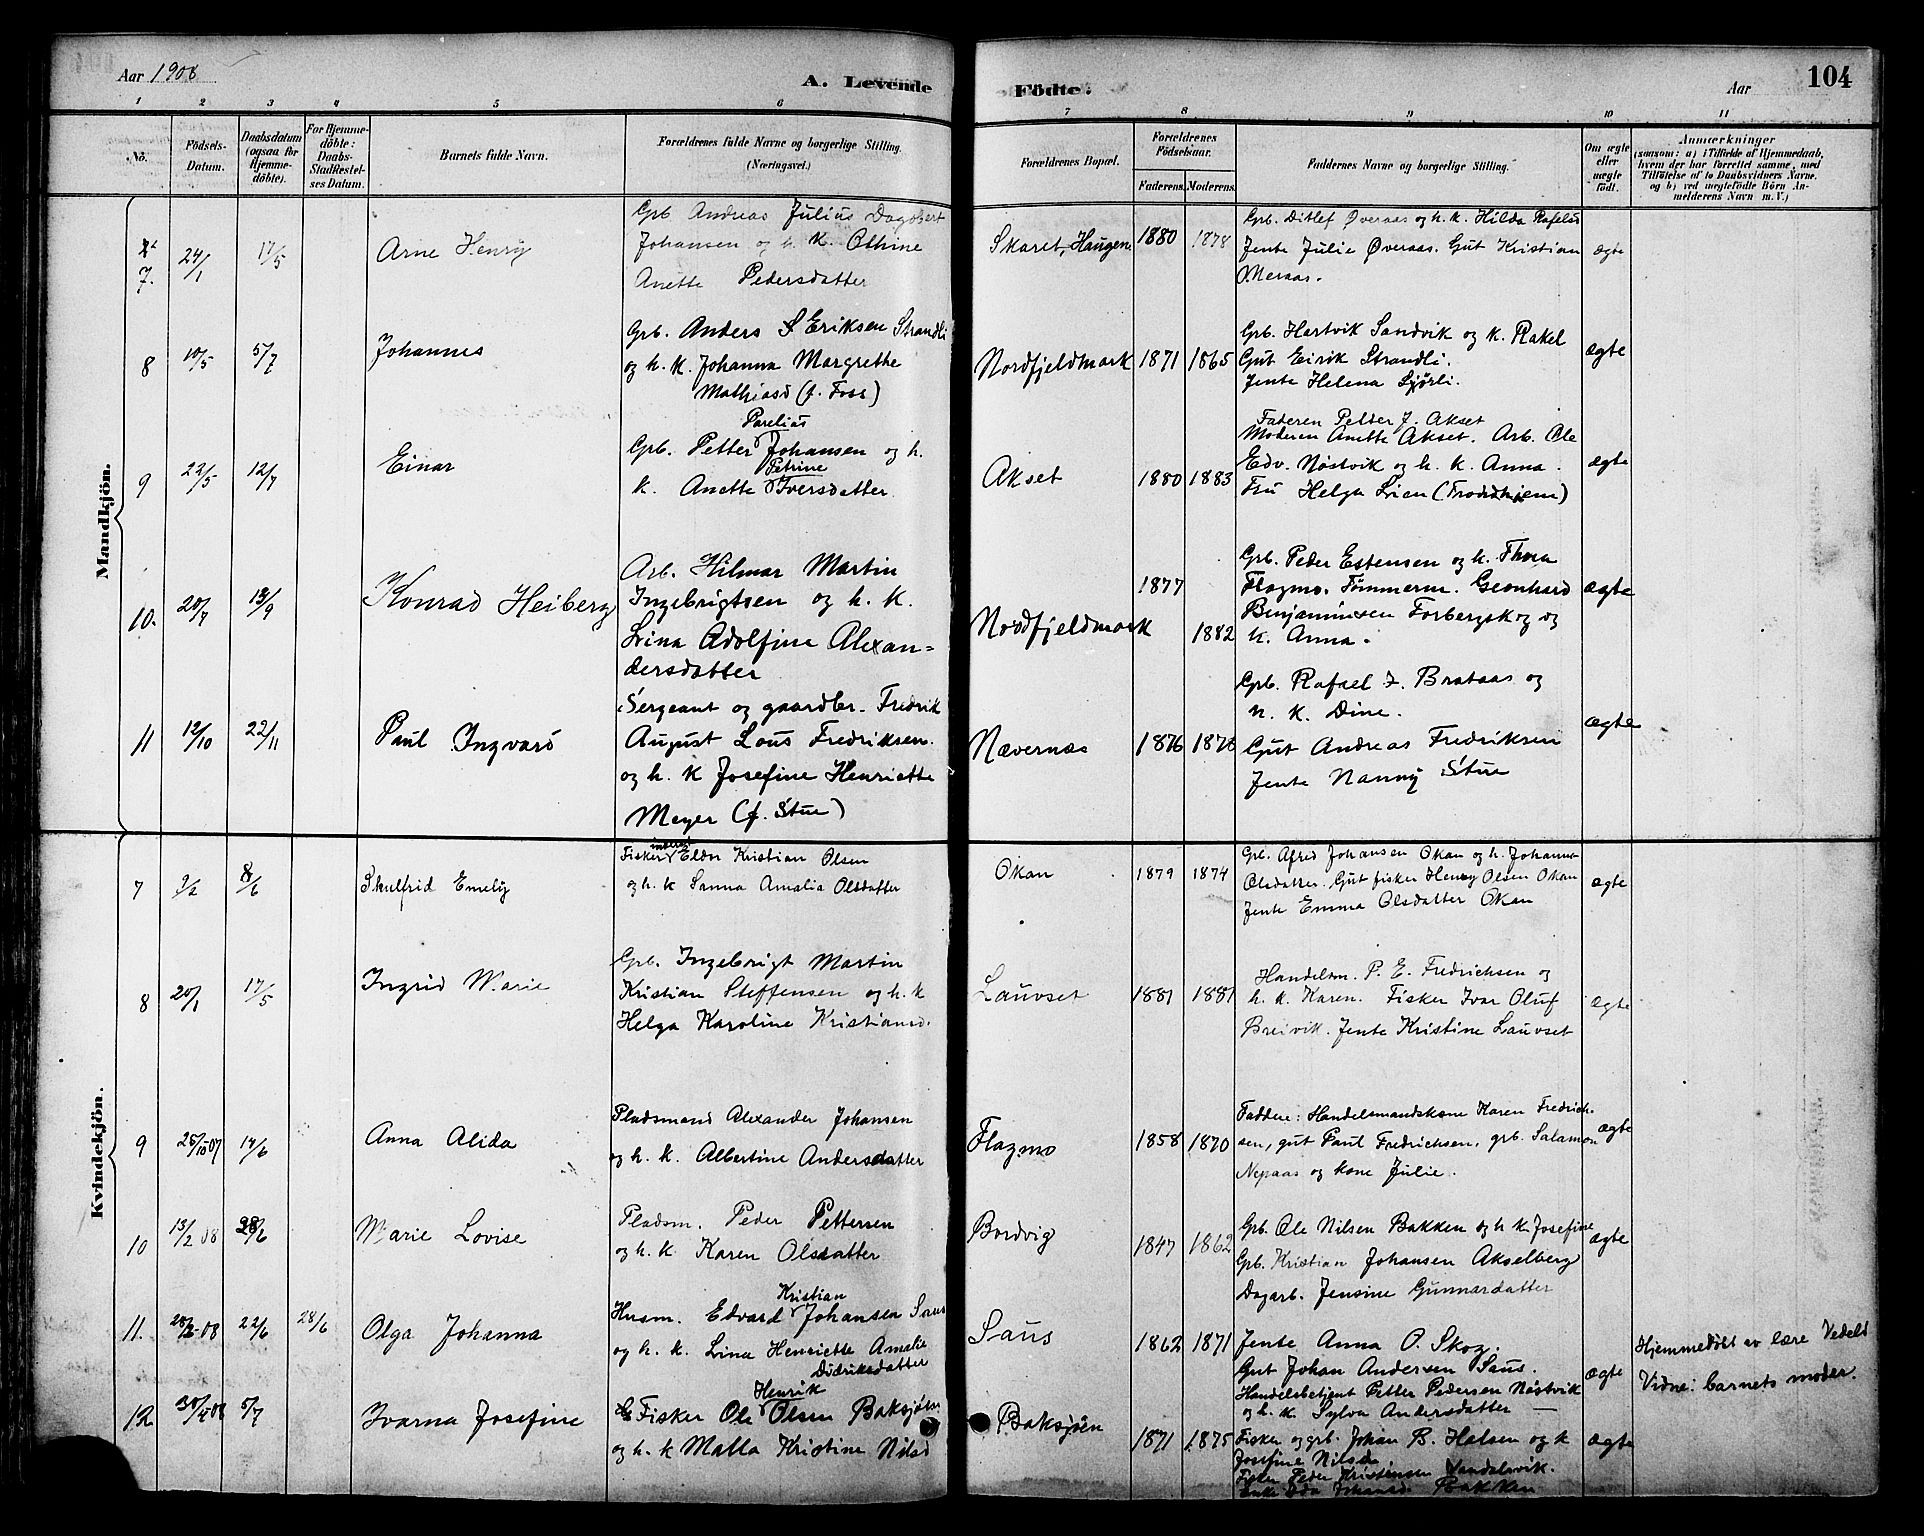 Aar 1908
A. Levende
Födte.
Aar
104
1 2 3 4 5 6 7 8 9 10 11
No.
Födsels-
Datum.
Daabsdatum
(ogsaa for
Hjemme-
döbte).
For Hjemme-
döbte:
Daabs-
Stadfæstel-
ses Datum.
Barnets fulde Navn.
Forældrenes fulde Navne og borgerlige Stilling.
(Næringsvei.)
Forældrenes Bopæl.
Forældrenes
Födselsaar.
Faderens. Moderens.
Faddernes Navne og borgerlige Stilling.
Om ægte
eller
uægte
födt.
Anmærkninger
(saasom: a) i Tilfælde af Hjemmedaab,
hvem der har forrettet samme, med
Tilföielse af to Daabsvidners Navne,
og b) ved uægtefödte Börn An-
melderens Navn m. V.)
Mandkjön.
7. 24/1 17/5 Arne Henry
Grb Andreas Julius Dagobert
Johansen og h. k. Othine
Anette Pedersdatter
Skaret, Haugene 1880 1878
Grb. Ditlef Øveraas og h. k. Hilda Rafelsd
Jente Julie Øveraas. Gut Kristian
Meraas.
ægte
8 10/5 5/7 Johannes
Grb. Anders Eriksen Strandli
og h. k. Johanna Margrethe
Mathiasd (f. Foss)
Nordfjeldmark 1871 1865
Grb. Hartvik Sandvik og k. Rakel
Gut Eirik Strandli.
Jente Helena Sjørli.
ægte
9 22/5 12/7 Einar
Parelius
Grb. Petter Johansen og h.
Petrine
k. Anette Iversdatter.
Akset 1880 1883
Faderen Petter J. Akset
Moderen Anette Akset. Arb. Ole
Edv. Nøstvik og h. k. Anna.
Fru Helga Lien (Trondhjem)
ægte
10. 20/7 13/9 Konrad Heiberg
Arb. Hilmar Martin
Ingebrigtsen og h. k.
Lina Adolfine Alexan-
dersdatter
Nordfjeldmark 1877 1882
Grb. Peder Estensen og h. Thora
Flagmo. Tømmerm. Geonhard
Benjaminsen Forbergskog og
k. Anna.
ægte
11 12/10 22/11 Paul Ingvard
Sergeant og gaardbr. Fredrik
August Lous Fredriksen.
og h. k Josefine Henriette
Meyer (f. Stue)
Nævernes 1876 1878
Grb. Rafael J. Brataas og
h. k. Dine.
Gut Andreas Fredriksen
Jente Nanny Stue
ægte
Kvindekjön.
7 9/2 8/6 Skulfrid Emely
Fisker Eldor Kristian Olsen
og h. k Sanna Amalia Olsdatter
Okan 1879 1874
Grb. Alfred Johansen Okan og h. Johanna
Olsdatter. Gut fisker Henry Olsen Okan
Jente Emma Olsdatter Okan
ægte
8 20/1 17/5 Ingrid Marie
Grb. Ingebrigt Martin
Kristian Steffensen og h. k
Helga Karoline Kristiansd.
Lauvset 1881 1881
Handelsm. P. E. Fredrichsen og
h. k. Karen. Fisker Ivar Oluf
Breivik. Jente Kristine Lauvset
ægte
9 25/10 07 14/6 Anna Alida
Pladsmand Alexander Johansen
og h. k. Albertine Andersdatter
Flagmo 1858 1870
Faddere: Handelsmandskone Karen Fredrich-
sen, gut Paul Fredrichsen, grb. Salamon
Nepaas og kone Julie.
ægte
10 13/2 08 28/6 Marie Lovise
Pladsm. Peder Pettersen
og h. k. Karen Olsdatter
Bordvig 1847 1862
Grb. Ole Nilsen Bakken og h k Josefine
Grb. Kristian Johansen Akselberg
Dagarb. Jensine Gunnardatter
ægte
11. 28/2-08 22/6 28/6 Olga Johanna
Kristian
Husm. Edvard Johansen Saus
og h. k. Lina Henriette Amalie
Didriksdatter
Saus 1862 1871
Jente Anna O. Skog.
Gut Johan Andersen Saus.
Handelsbetjent Petter Pedersen Nøstvik
og h. k Sylva Andersdatter
ægte
Hjemmedøbt av lære Vedeld
Vidne: barnets moder.
12 30/4 08 5/7 Ivarna Josefine
Henrik
Fisker Ole Olsen Baksjøen
og h. k Malla Kristine Nilsd
Baksjøen 1871 1875
Fisker og grb. Johan B. Halsen og k
Josefine Nilsd
Fisker Peder Kristensen Vandalsvik.
Enke Ida Johansd. Bakken
ægte